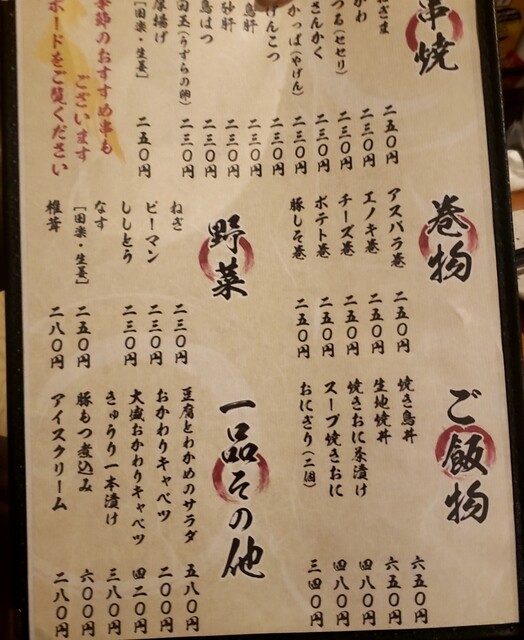 串焼
ねぎま 二五〇円
かわ 二三〇円
つる(セセリ) 二三〇円
さんかく 二三〇円
かっぱ(やげん) 二三〇円
げんこつ 二三〇円
鳥肝 二三〇円
砂肝 二三〇円
鳥はつ 二三〇円
玉(うずらの卵) 二三〇円
厚揚げ
[田楽・生姜] 二五〇円
季節のおすすめ串も
ございます
ボードをご覧ください
巻物
アスパラ巻 二五〇円
エノキ巻 二五〇円
チーズ巻 二五〇円
ポテト巻 二五〇円
豚しそ巻 二五〇円
野菜
ねぎ 二三〇円
ピーマン 二三〇円
ししとう 二三〇円
なす
[田楽・生姜] 二五〇円
椎茸 二八〇円
ご飯物
焼き鳥丼 六五〇円
生地焼丼 六五〇円
焼きおに茶漬け 四八〇円
スープ焼きおに 四八〇円
おにぎり(二個) 三四〇円
一品その他
豆腐とわかめのサラダ 五八〇円
おかわりキャベツ 二〇〇円
大盛おかわりキャベツ 四二〇円
きゅうり一本漬け 三八〇円
豚もつ煮込み 六〇〇円
アイスクリーム 二八〇円